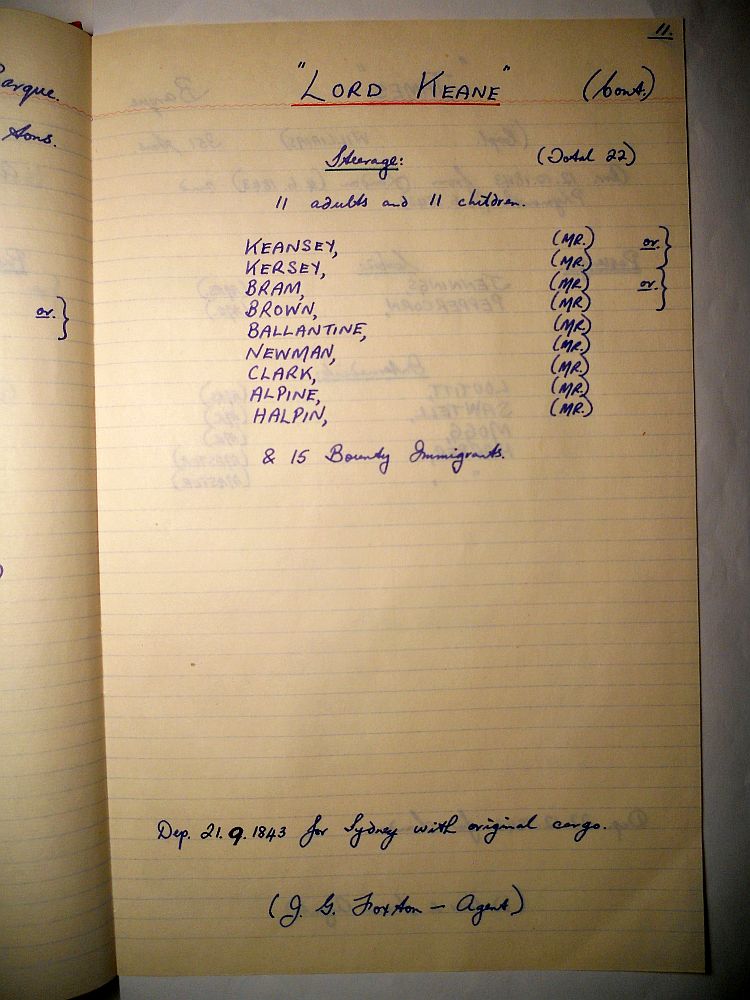 11.
arque.
"LORD KEANE" (Cont.)
Tons.
Steerage: (Total 22)
11 adults and 11 children.
KEANSEY, (MR.) or.}
KERSEY, (MR.)
BRAM, (MR.) or.}
BROWN, (MR.)
or.}
BALLANTINE, (MR.)
NEWMAN, (MR.)
CLARK, (MR.)
ALPINE, (MR.)
HALPIN, (MR.)
& 15 Bounty Immigrants.
Dep. 21.9.1843 for Sydney with original cargo.
(J. G. Foxton - Agent)